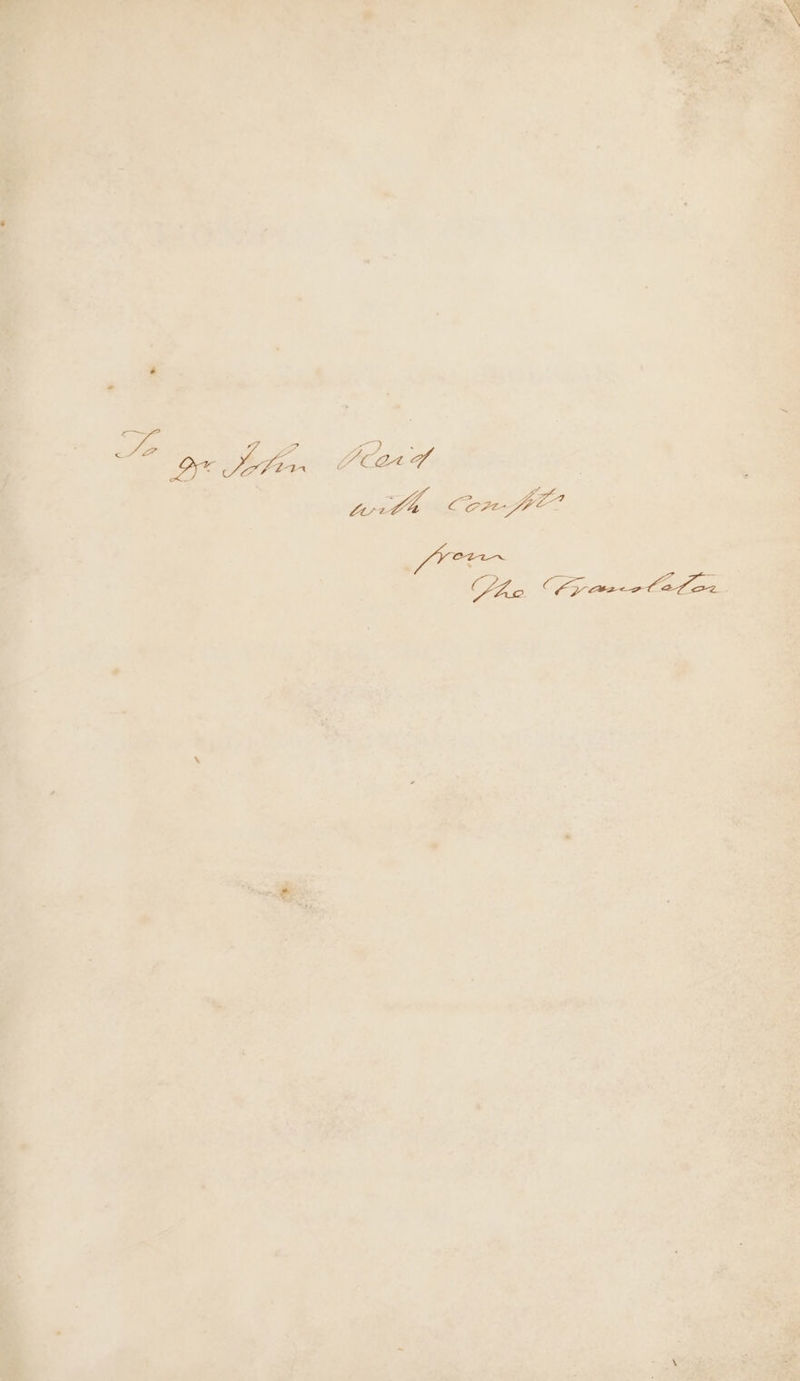 To
Dr John Reid
with Complts
from
The Translator